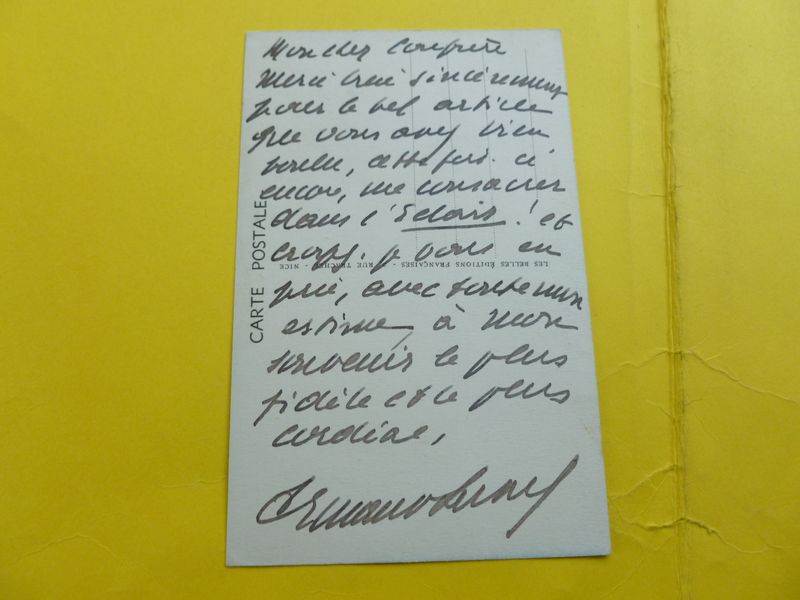 Mon cher Confrère
Merci bien sincèrement
pour le bel article
que vous avez bien
voulu, cette fois-ci
encore, me consacrer
dans l'Eclair ! et
croyez, je vous en
prie, avec toute mon
estime, à mon
souvenir le plus
fidèle et le plus
cordial,
CARTE POSTALE
LES BELLES ÉDITIONS FRANÇAISES - RUE - NICE